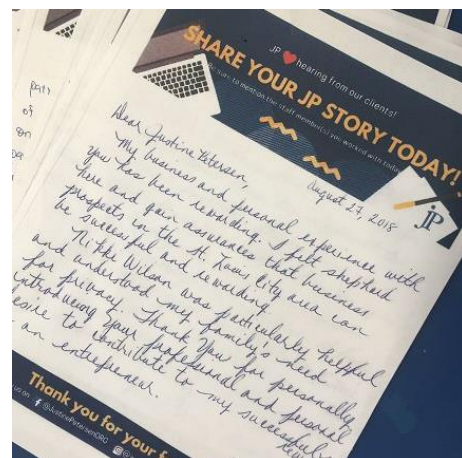 JP ❤ hearing from our clients!
SHARE YOUR JP STORY TODAY!
Be sure to mention the staff member(s) you worked with today
JP
August 27, 2018
Dear Justine Petersen,
My business and personal experience with
you has been rewarding. I felt shepherd
here and gain assurances that business
prospects in the St. Louis City area can
be successful and rewarding.
Wilson was particularly helpful
and understood my family's need
for privacy. Thank You for personally
introducing your professional and personal
desire to contribute to my successful
an entrepreneur.
Thank you for your
us on f @JustinePetersenORG